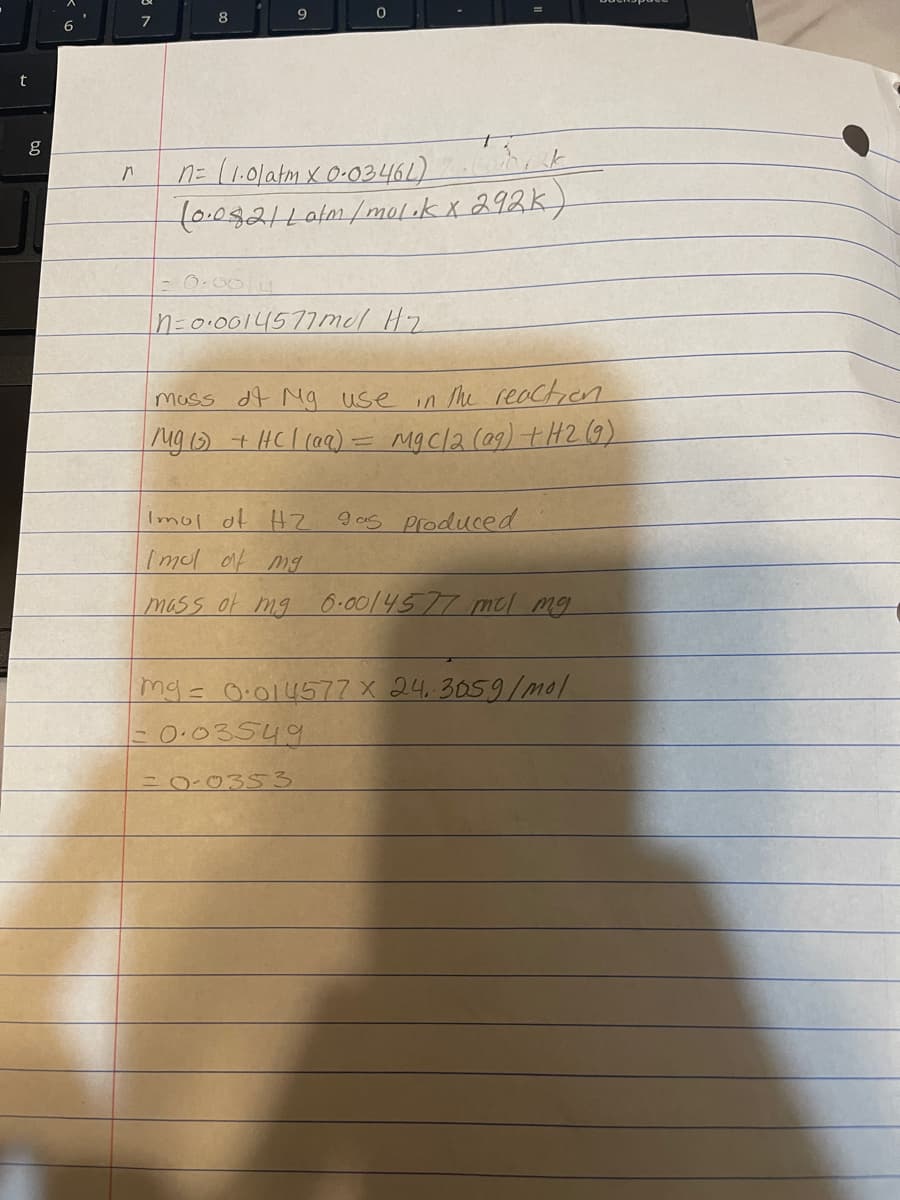 ^ & 
6 ' 7 8 9 0 - =
t
g
n n= (1.01atm x 0.0346L)
(0.0821 L atm/mol.k x 292k)
= 0.0014
n=0.0014577mol H2
mass of Mg use in the reaction
Mg(s) + HCl(aq) = MgCl2(aq) + H2(g)
1mol of H2 gas produced
1mol of mg
mass of mg 0.0014577 mol mg
mg = 0.014577 x 24.305g/mol
= 0.0354g
= 0.0353